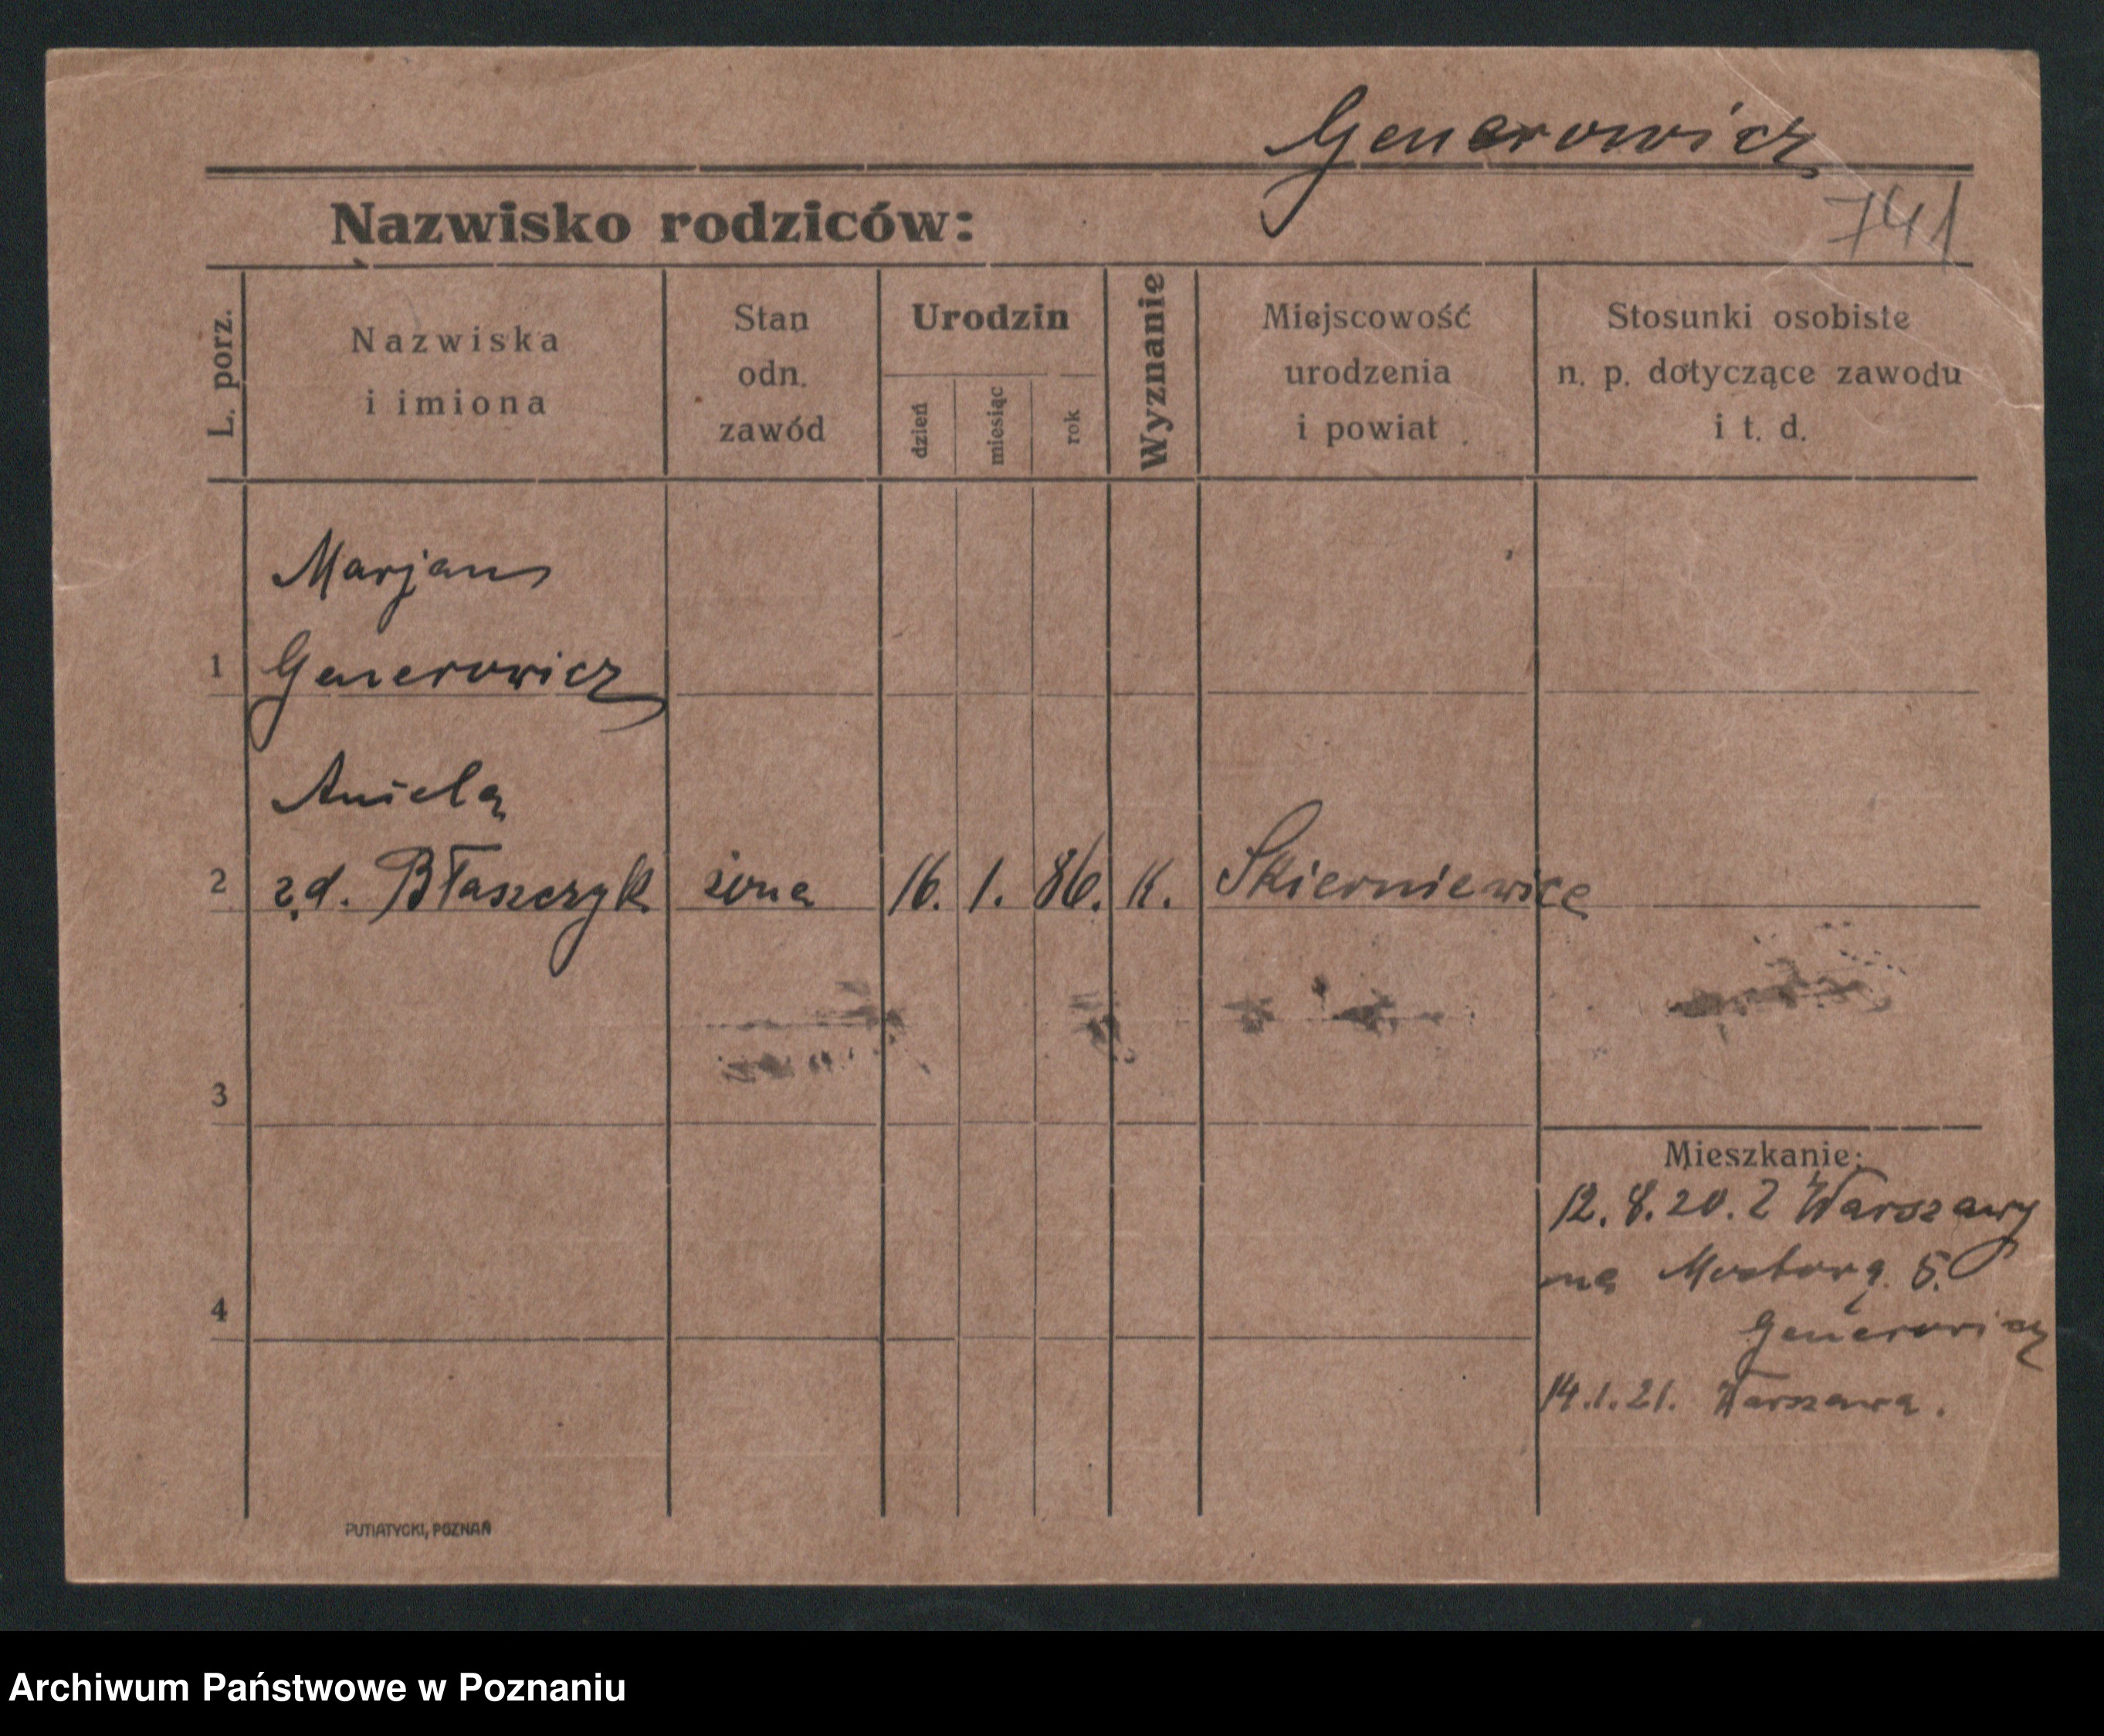 Generowicz
Nazwisko rodziców:
741
L. porz.
Nazwiska
i imiona
Stan
odn.
zawód
Urodzin
dzień
miesiąc
rok
Wyznanie
Miejscowość
urodzenia
i powiat
Stosunki osobiste
n. p. dotyczące zawodu
i t. d.
Marjan
1 Generowicz
Aniela
2 z d. Błaszczyk żona 16. 1. 86. K. Skierniewice
3
Mieszkanie:
12.8.20. Z Warszawy
na 5.
4
Generowicz
14.1.21. Warszawa.
PUTIATYCKI, POZNAŃ
Archiwum Państwowe w Poznaniu